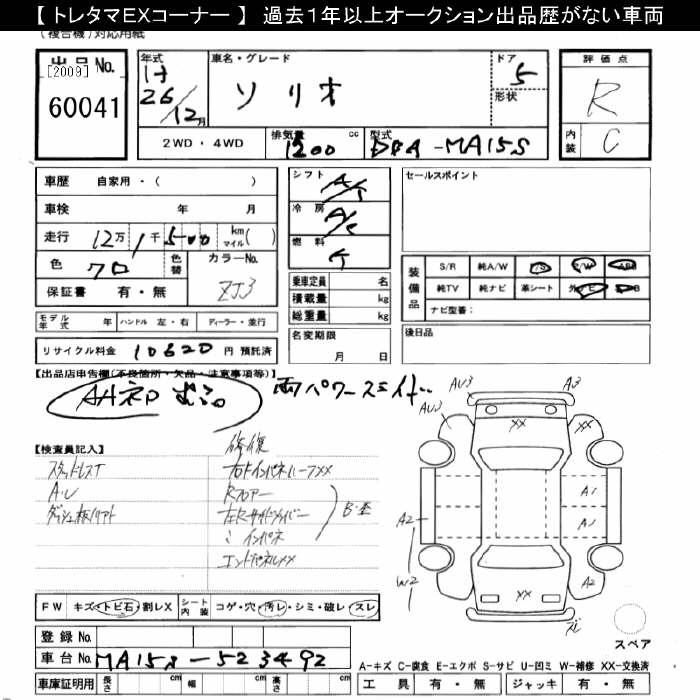 【 トレタマEXコーナー 】 過去1年以上オークション出品歴がない車両
(複合機)対応用紙
出品 No.
[2009]
60041
年式
26/12月
車名・グレード
ソリオ
ドア
5
形状
評価点
R
内装
C
2WD ・ 4WD
排気量
1200
cc
型式
DBA-MA15S
車歴 自家用・( )
車検 年 月
走行 12万 1千 500 km マイル( )
色
クロ
色替
カラーNo.
ZJ3
保証書 有・無
シフト
A/T
冷房
A/C
燃料
乗車定員 名
積載量 kg
総重量 kg
名変期限
月 日
セールスポイント
装備品
S/R 純A/W P/S P/W ABS
純TV 純ナビ 革シート
ナビ型番:
後日品
モデル年式 年 ハンドル 左・右 ディーラー・並行
リサイクル料金 10620 円 預託済
【出品店申告欄(不良箇所・欠品・注意事項等)】
両パワースライド
AV3
A3
AV3
XX
A1
A2
W2
A2
XX
【検査員記入】
修復
スタッドレスT
右ドインパネハーフXX
A・V
Rフロアー
B・歪
インパネ
エンドパネルXX
FW キズ・トビ石・割レX シート内装 コゲ・穴・汚レ・シミ・破レ・スレ
登録 No.
車台 No. MA15S-523492
車庫証明用 長さ cm 幅 cm 高さ cm
スペア
A-キズ C-腐食 E-エクボ S-サビ U-凹ミ W-補修 XX-交換済
工具 有・無 ジャッキ 有・無